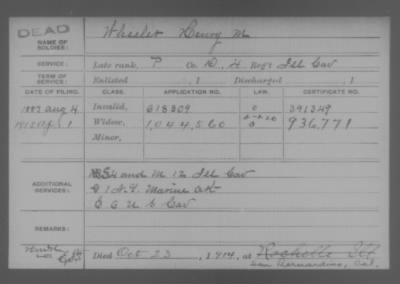 DEAD
NAME OF SOLDIER: Wheeler Henry M
SERVICE: Late rank, P Co. D, 4 Reg't Ill Cav
TERM OF SERVICE: Enlisted , 1 Discharged , 1
DATE OF FILING. CLASS. APPLICATION NO. LAW. CERTIFICATE NO.
1887 Aug 4. Invalid, 618309 0 391249
1915 1 Widow, 1,044,560 936,771
Minor,
ADDITIONAL SERVICES: and M 12 Ill Cav
G 1 Marine
E 6 U S Cav
REMARKS:
Died Oct 23, 1914, at Rochelle Ill
San Bernardino, Cal.